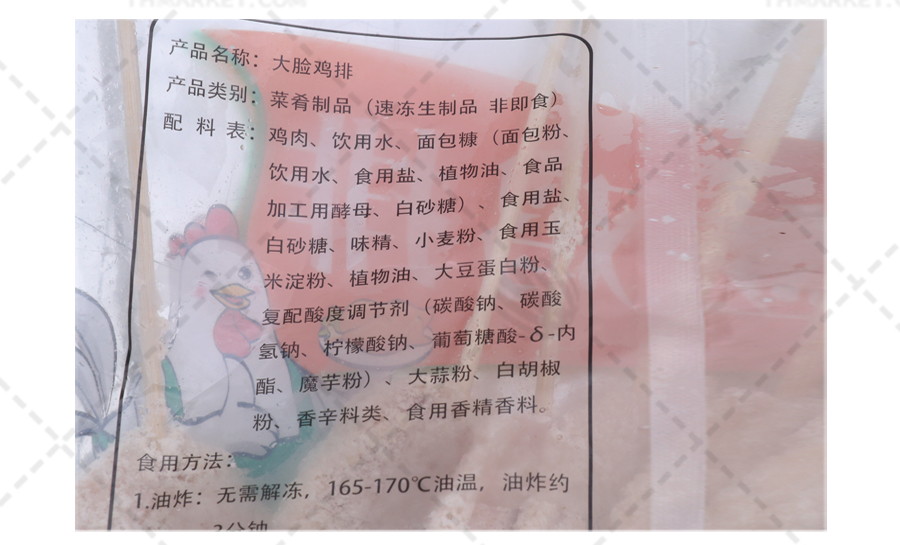 产品名称：大脸鸡排
产品类别：菜肴制品（速冻生制品 非即食）
配 料 表：鸡肉、饮用水、面包糠（面包粉、
饮用水、食用盐、植物油、食品
加工用酵母、白砂糖）、食用盐、
白砂糖、味精、小麦粉、食用玉
米淀粉、植物油、大豆蛋白粉、
复配酸度调节剂（碳酸钠、碳酸
氢钠、柠檬酸钠、葡萄糖酸-δ-内
酯、魔芋粉）、大蒜粉、白胡椒
粉、香辛料类、食用香精香料。
食用方法：
1.油炸：无需解冻，165-170℃油温，油炸约
3分钟